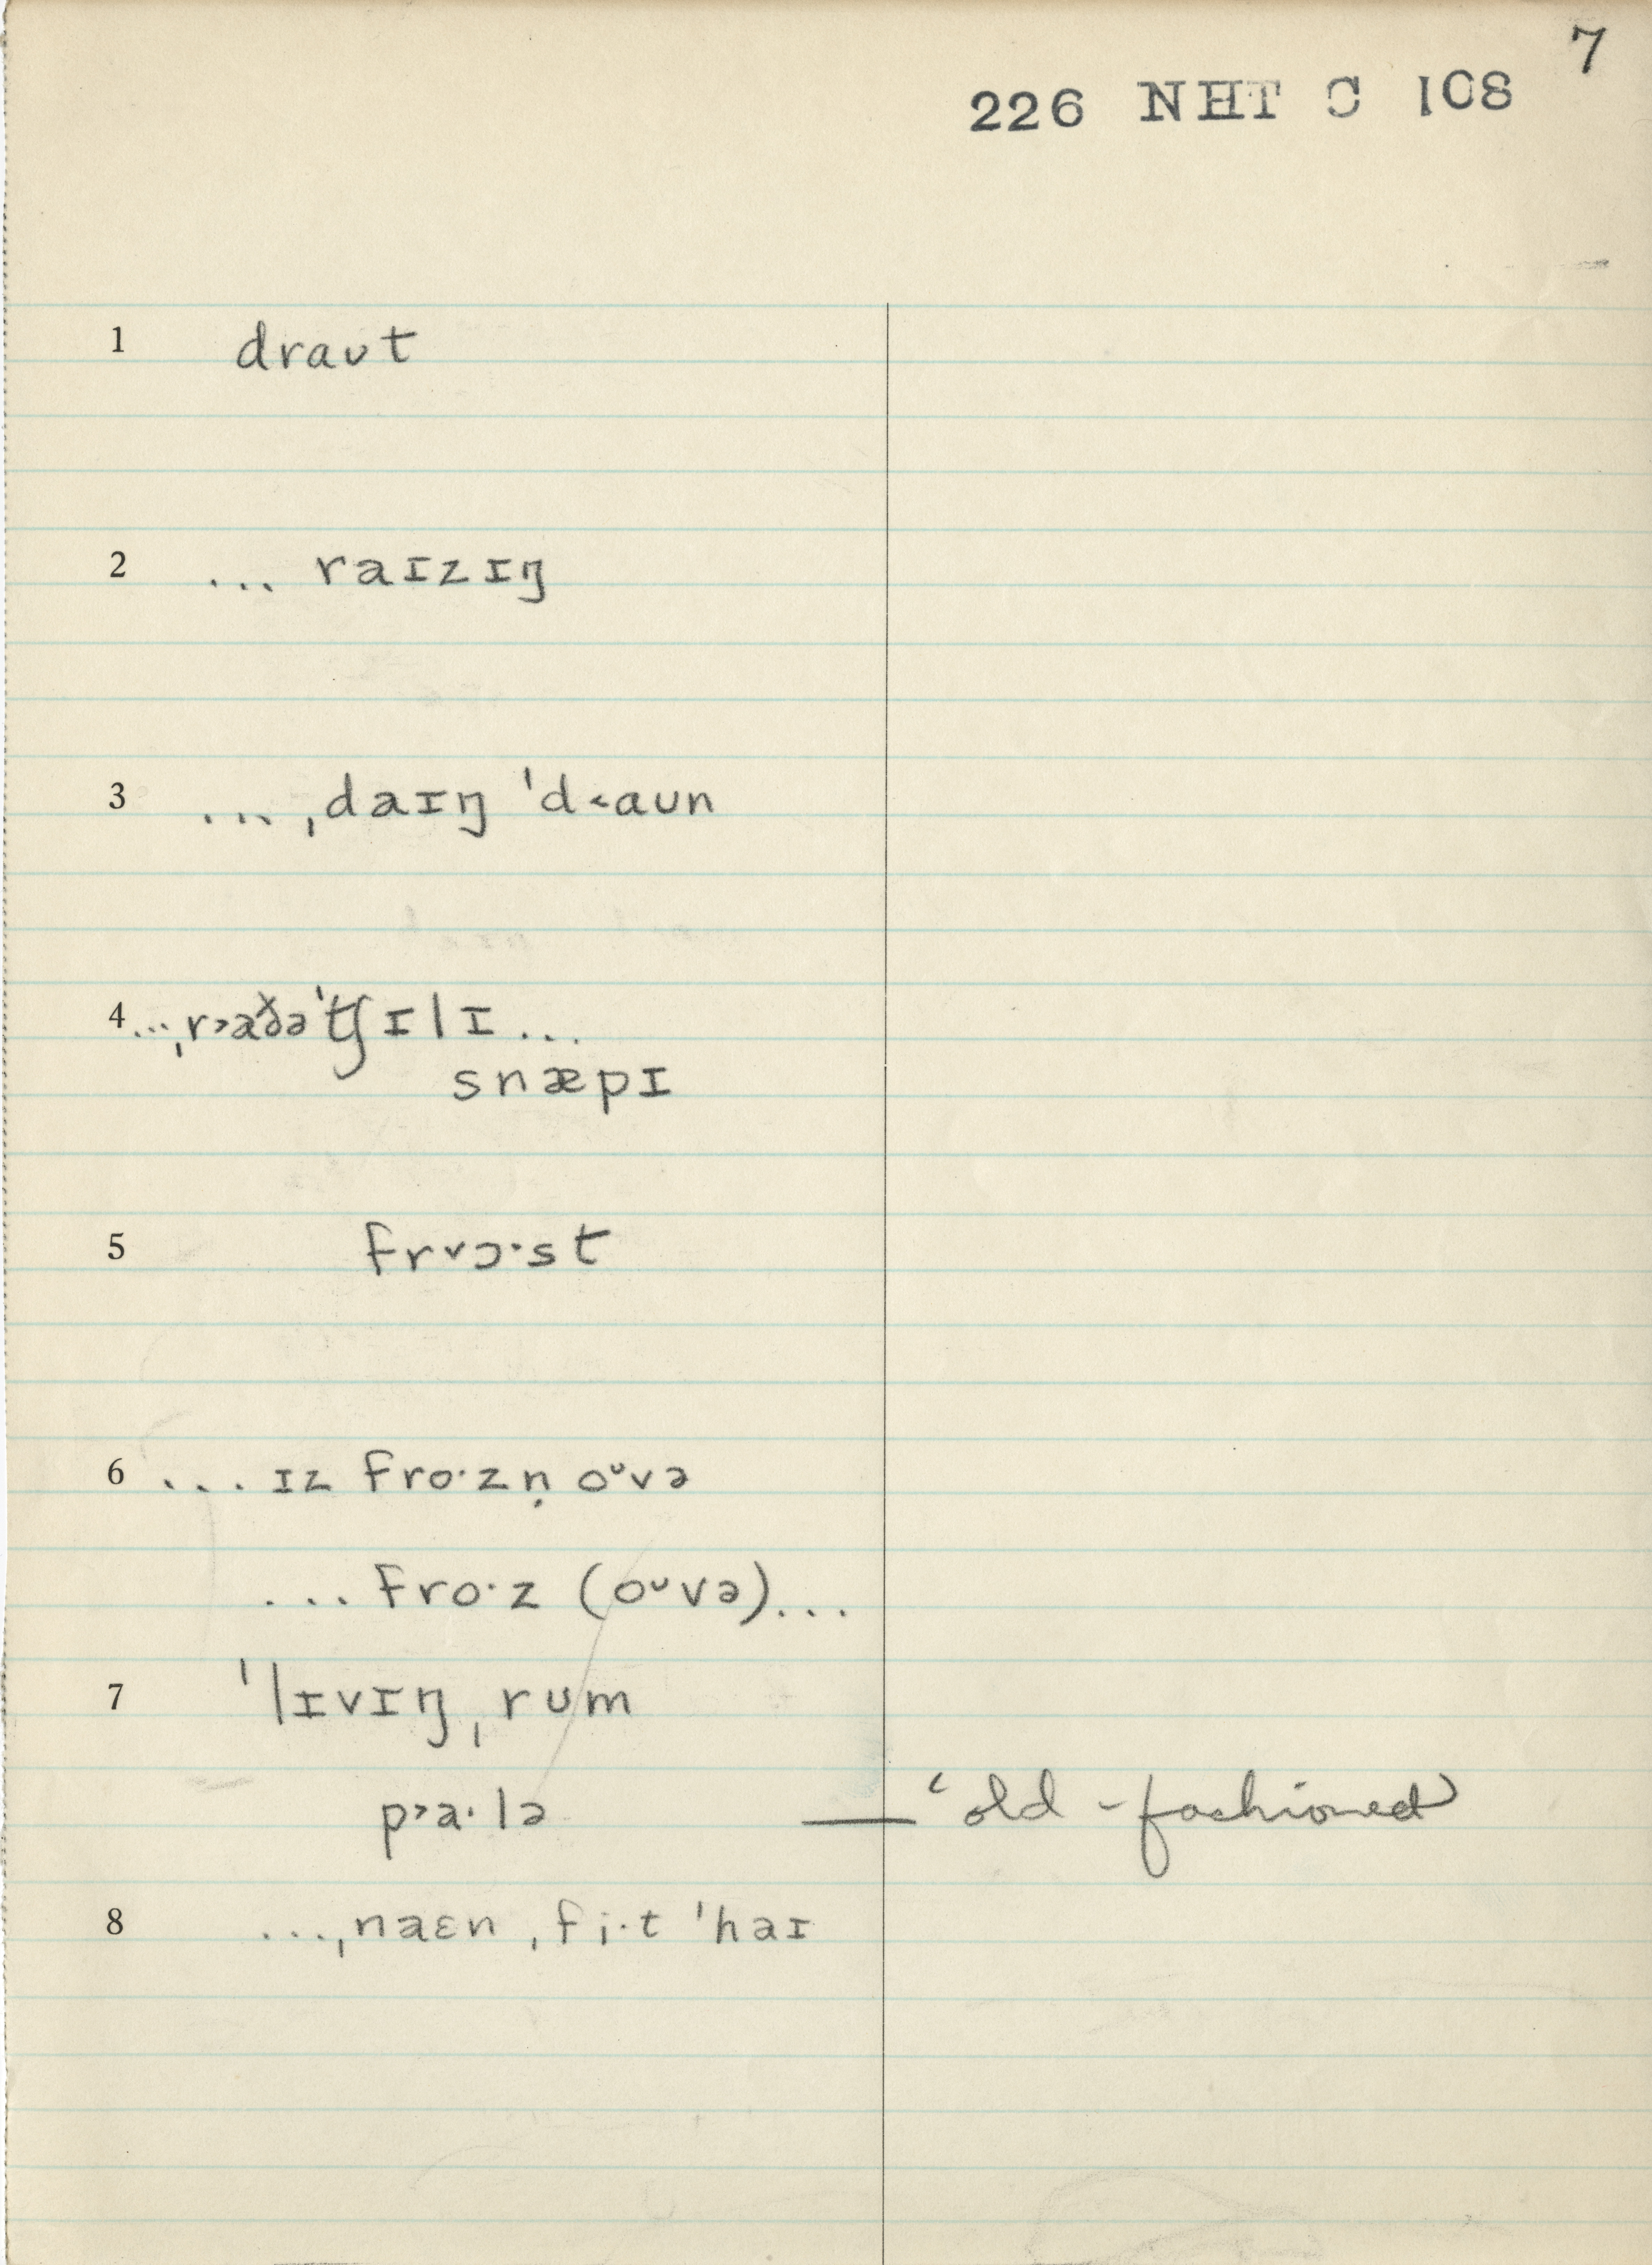 7
226 NHT C 108
1 draʊt
2 ... raɪzɪŋ
3 ... ˌdaɪŋ ˈd˂aʊn
4 ... ˌr˃aðəˈtʃɪlɪ ...
snæpɪ
5 frᵛɔ·st
6 ... ɪz fro·zn̩ oᶷvə
... fro·z (oᶷvə) ...
7 ˈlɪvɪŋˌrʊm
p˃a·lə — ‘old-fashioned’
8 ... ˌnaɛn ˌfi·t ˈhaɪ